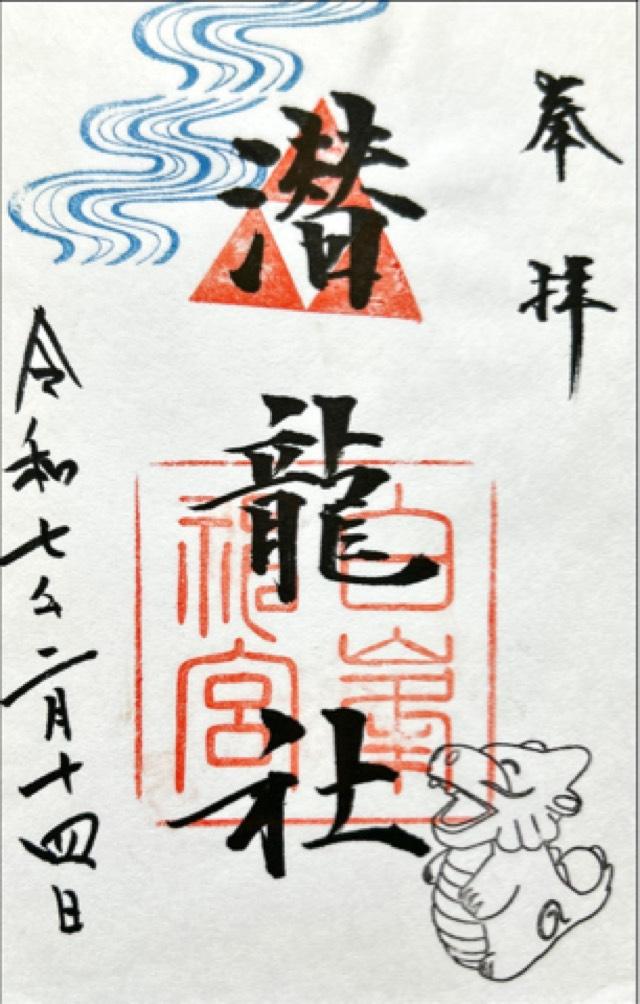 奉拝
潜龍社
白峯神宮
令和七年二月十四日